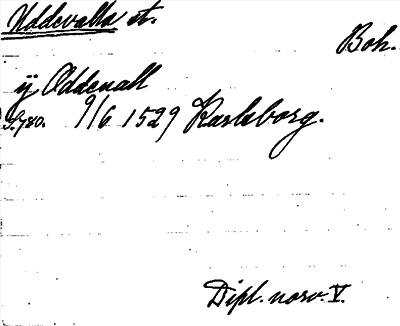 Uddevalla st.
Boh.
ÿ Oddenall
S. 780. 9/6 1529 Karlsborg.
Dipl. norv. V.